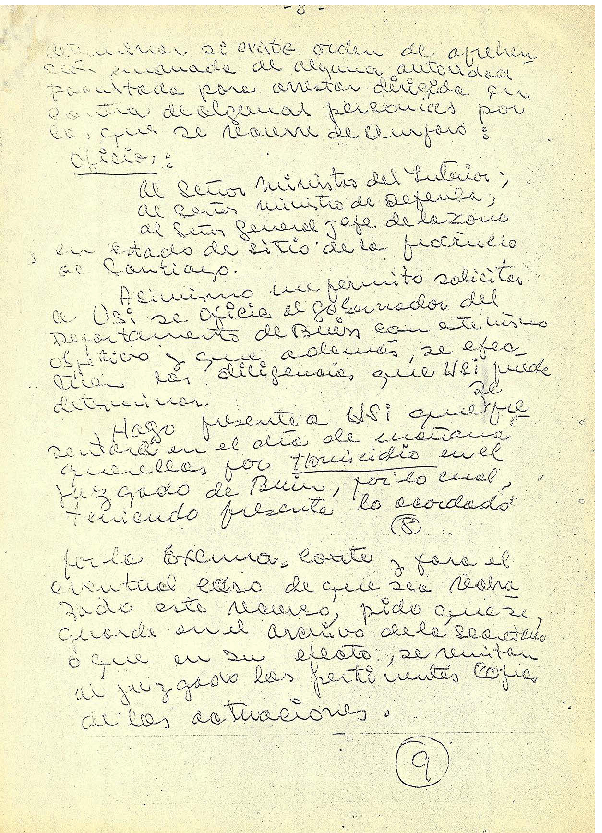 - 8 -
determinar si existe orden de aprehen
sión emanada de alguna autoridad
facultada para arrestar dirigida en
contra de algunas personas por
las que se recurre de amparo:
Oficios:
Al Señor Ministro del Interior;
al Señor Ministro de Defensa;
al Señor General Jefe de la Zona
en Estado de sitio de la Provincia
de Santiago.
Asimismo me permito solicitar
a USI se oficie al Gobernador del
Departamento de Buin con este mismo
objetivo y que además, se efec-
túen las diligencias que USI puede
determinar.
Hago presente a USI que se pre
sentará en el día de mañana
querellas por Homicidio en el
juzgado de Buin, por lo cual,
teniendo presente lo acordado
(8)
por la Excma. Corte y para el
eventual caso de que sea recha
zado este recurso, pido que se
guarde en el archivo de la Secretaría
o que en su efecto, se remitan
al juzgado las pertinentes copias
de las actuaciones.
9